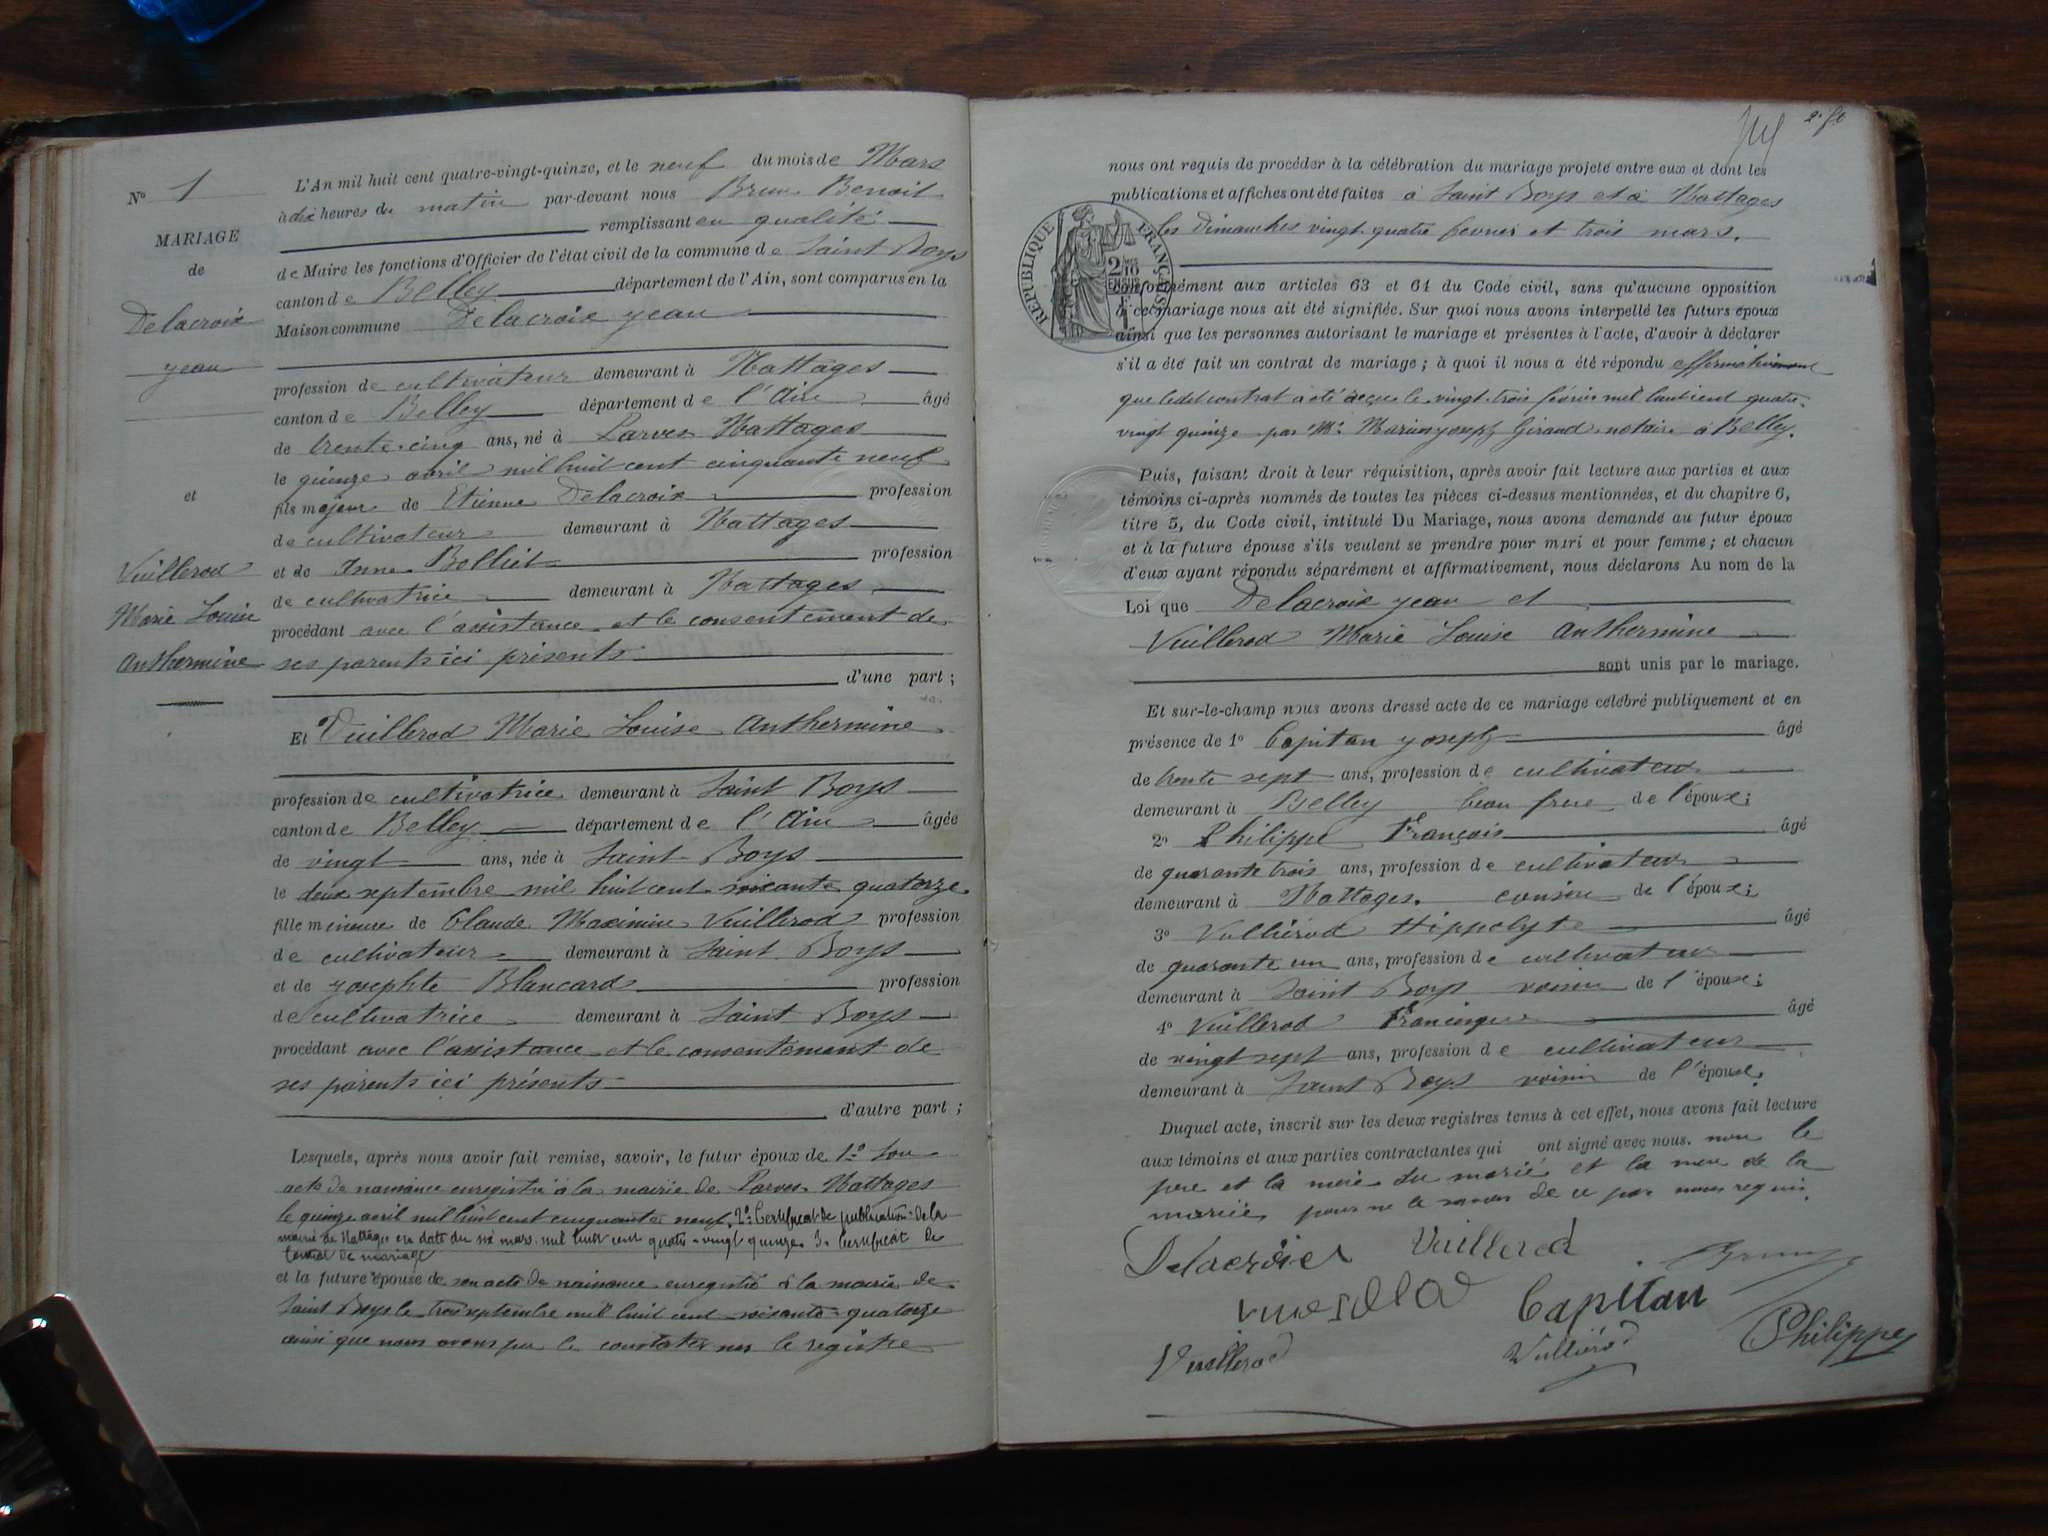 N° 1
MARIAGE
de
Delacroix
Jean
et
Vuillerod
Marie Louise
Anthermine
L'An mil huit cent quatre-vingt-quinze, et le neuf du mois de Mars
à dix heures du matin par-devant nous Brun Benoit
remplissant en qualité
de Maire les fonctions d'Officier de l'état civil de la commune de Saint Boys
canton de Belley département de l'Ain, sont comparus en la
Maison commune Delacroix Jean
profession de cultivateur demeurant à Nattages
canton de Belley département de l'Ain âgé
de trente-cinq ans, né à Parves Nattages
le quinze avril mil huit cent cinquante neuf
fils majeur de Etienne Delacroix profession
de cultivateur demeurant à Nattages
et de Anne Bolliet profession
de cultivatrice demeurant à Nattages
procédant avec l'assistance et le consentement de
ses parents ici présents
d'une part ;
Et Vuillerod Marie Louise Anthermine
profession de cultivatrice demeurant à Saint Boys
canton de Belley département de l'Ain âgée
de vingt ans, née à Saint-Boys
le deux septembre mil huit cent soixante quatorze
fille mineure de Claude Maximin Vuillerod profession
de cultivateur demeurant à Saint Boys
et de Josephte Blancard profession
de cultivatrice demeurant à Saint Boys
procédant avec l'assistance et le consentement de
ses parents ici présents
d'autre part ;
Lesquels, après nous avoir fait remise, savoir, le futur époux de 1° Son
acte de naissance enregistré à la mairie de Parves Nattages
le quinze avril mil huit cent cinquante neuf. 2° Certificat de publication de la
mairie de Nattages en date du mars mil huit cent quatre-vingt quinze 3° Certificat de
contrat de mariage
et la future épouse de son acte de naissance enregistré à la mairie de
Saint Boys le trois septembre mil huit cent soixante-quatorze
ainsi que nous avons pu le constater sur le registre
nous ont requis de procéder à la célébration du mariage projeté entre eux et dont les
publications et affiches ont été faites à Saint Boys et à Nattages
les Dimanches vingt-quatre fevrier et trois mars.
RÉPUBLIQUE FRANÇAISE
conformément aux articles 63 et 64 du Code civil, sans qu'aucune opposition
à ce mariage nous ait été signifiée. Sur quoi nous avons interpellé les futurs époux
ainsi que les personnes autorisant le mariage et présentes à l'acte, d'avoir à déclarer
s'il a été fait un contrat de mariage ; à quoi il nous a été répondu affirmativement
que ledit contrat a été reçu le vingt-trois février mil huit cent quatre-
vingt quinze par Me Marin Joseph Girand notaire à Belley.
Puis, faisant droit à leur réquisition, après avoir fait lecture aux parties et aux
témoins ci-après nommés de toutes les pièces ci-dessus mentionnées, et du chapitre 6,
titre 5, du Code civil, intitulé Du Mariage, nous avons demandé au futur époux
et à la future épouse s'ils veulent se prendre pour mari et pour femme ; et chacun
d'eux ayant répondu séparément et affirmativement, nous déclarons Au nom de la
Loi que Delacroix Jean et
Vuillerod Marie Louise Anthermine
sont unis par le mariage.
Et sur-le-champ nous avons dressé acte de ce mariage célébré publiquement et en
présence de 1° Capitan Joseph âgé
de trente sept ans, profession de cultivateur
demeurant à Belley beau frère de l'épouse ;
2° Philippe François âgé
de quarante trois ans, profession de cultivateur
demeurant à Nattages. cousin de l'époux ;
3° Vulliérod Hippolyte âgé
de quarante un ans, profession de cultivateur
demeurant à Saint Boys voisin de l'épouse ;
4° Vuillerod Francisque âgé
de vingt sept ans, profession de cultivateur
demeurant à Saint Boys voisin de l'épouse.
Duquel acte, inscrit sur les deux registres tenus à cet effet, nous avons fait lecture
aux témoins et aux parties contractantes qui ont signé avec nous. non le
père et la mère du marié et la mère de la
mariée pour ne le savoir de ce par nous requis.
Delacroix Vuillerod Brun
Capitan
Vuillerod Vulliérod Philippe